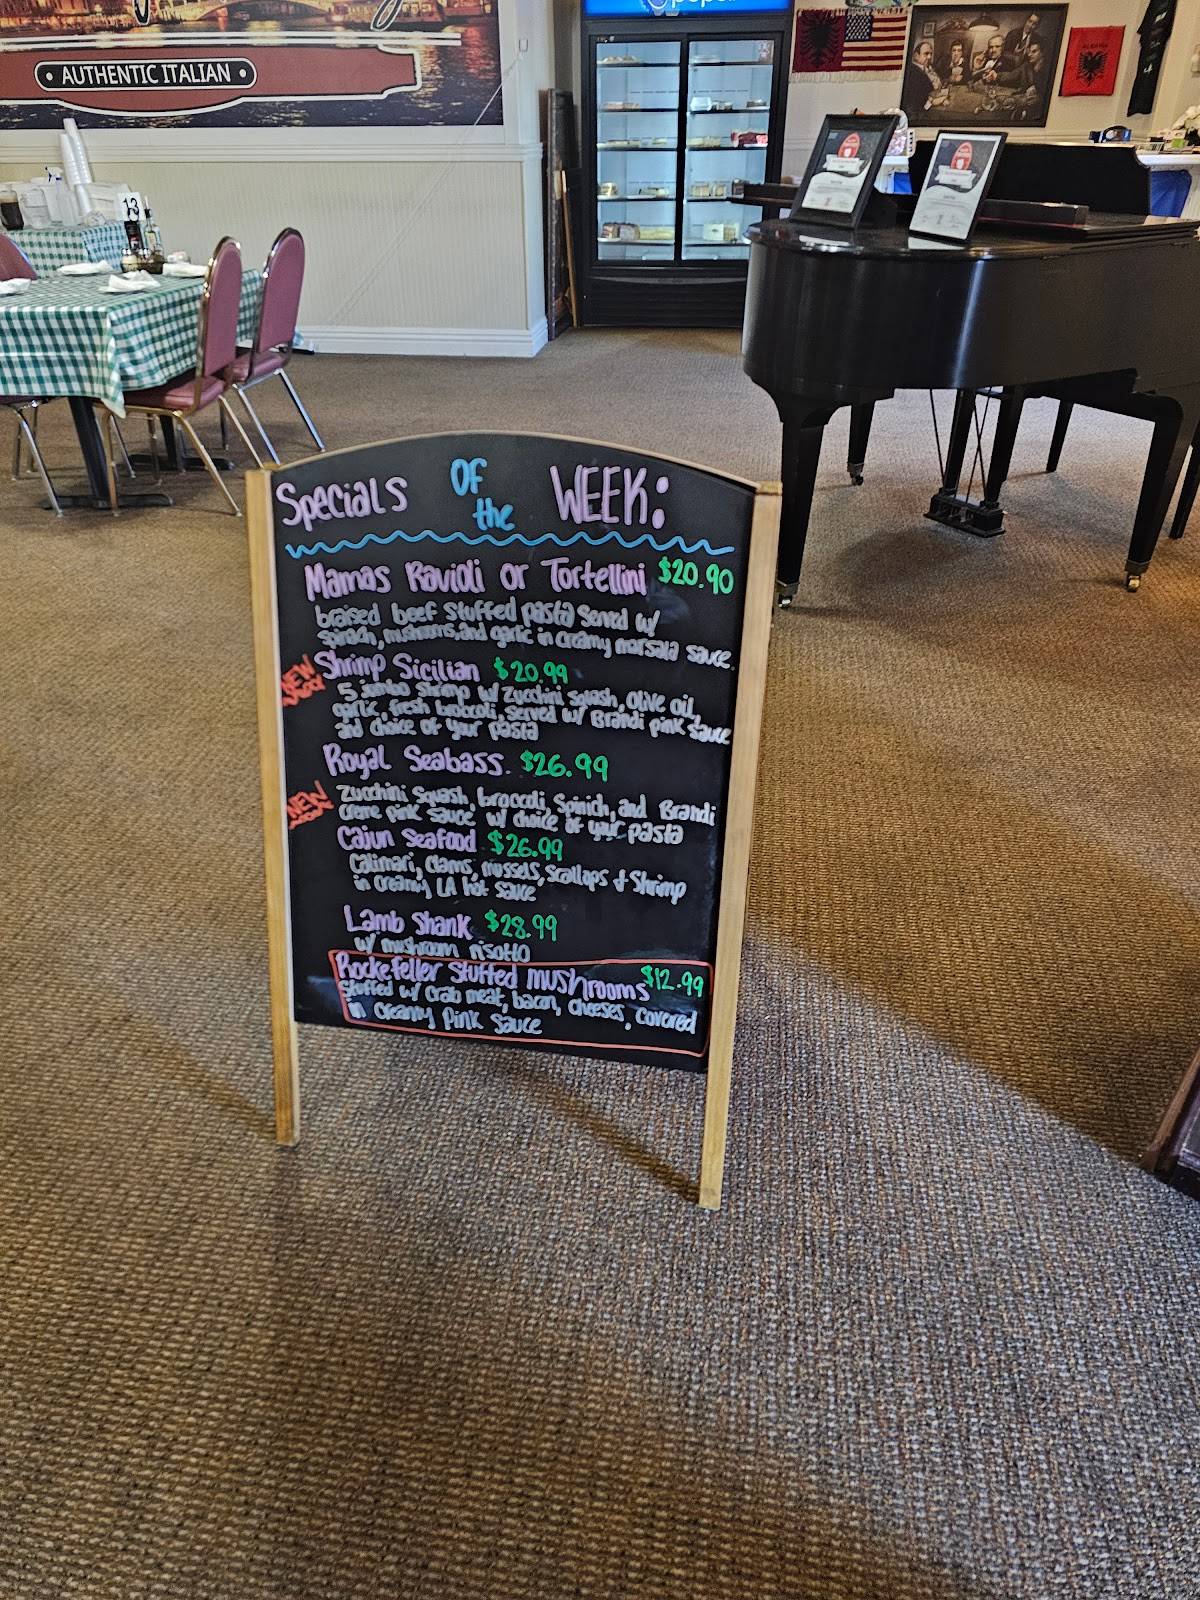 • AUTHENTIC ITALIAN •
pepsi
ALBANIA
13
Specials Of the WEEK:
Mamas Ravioli or Tortellini $20.90
braised beef stuffed pasta served w/
spinach, mushrooms, and garlic in creamy marsala sauce.
NEW
Shrimp Sicilian $20.99
5 jumbo shrimp w/ Zucchini Squash, Olive oil,
garlic, fresh broccoli, served w/ Brandi pink sauce
and choice of your pasta
Royal Seabass. $26.99
NEW
Zucchini Squash, broccoli, Spinich, and Brandi
Creme pink sauce w/ choice of your pasta
Cajun Seafood $26.99
Calimari, Clams, mussels, scallops & Shrimp
in creamy LA hot sauce
Lamb Shank $28.99
w/ mushroom risotto
Rockefeller Stuffed mushrooms $12.99
Stuffed w/ Crab meat, bacon, cheeses, covered
in creamy Pink Sauce